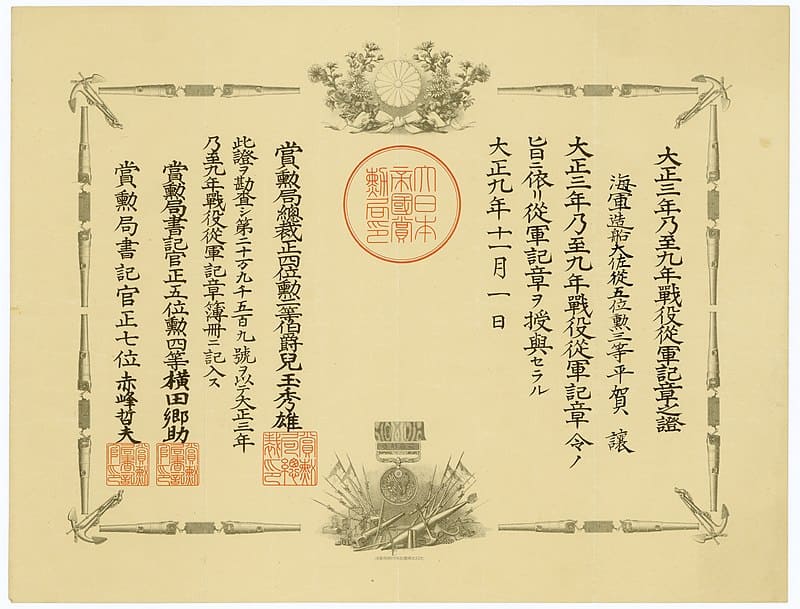 大正三年乃至九年戰役從軍記章之證
海軍造船大佐從五位勲三等平賀 讓
大正三年乃至九年戰役從軍記章令ノ
旨ニ依リ從軍記章ヲ授與セラル
大正九年十一月一日
大日本
帝國賞
勲局印
賞勲局總裁正四位勲二等伯爵兒玉秀雄
此證ヲ勘査シ第二十万九千五百九號ヲ以テ大正三年
乃至九年戰役從軍記章簿冊ニ記入ス
賞勲局書記官正五位勲四等横田郷助
賞勲局書記官正七位赤峰哲夫